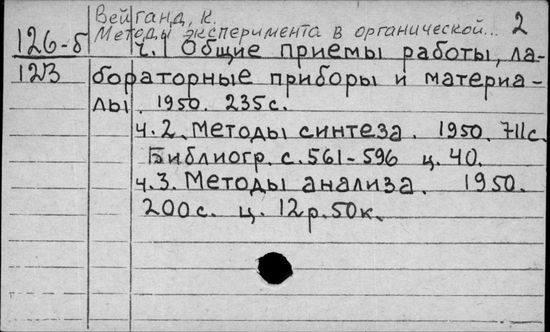 Вейганд, К. 2
Методы эксперимента в органической...
126-б ч.1 Общие приемы работы, ла-
1273 бораторные приборы и материа-
лы. 1950. 235с.
ч.2. Методы синтеза. 1950. 711с.
Библиогр. с.561-596 ц. 40.
ч.3. Методы анализа. 1950.
200с. ц. 12р.50к.